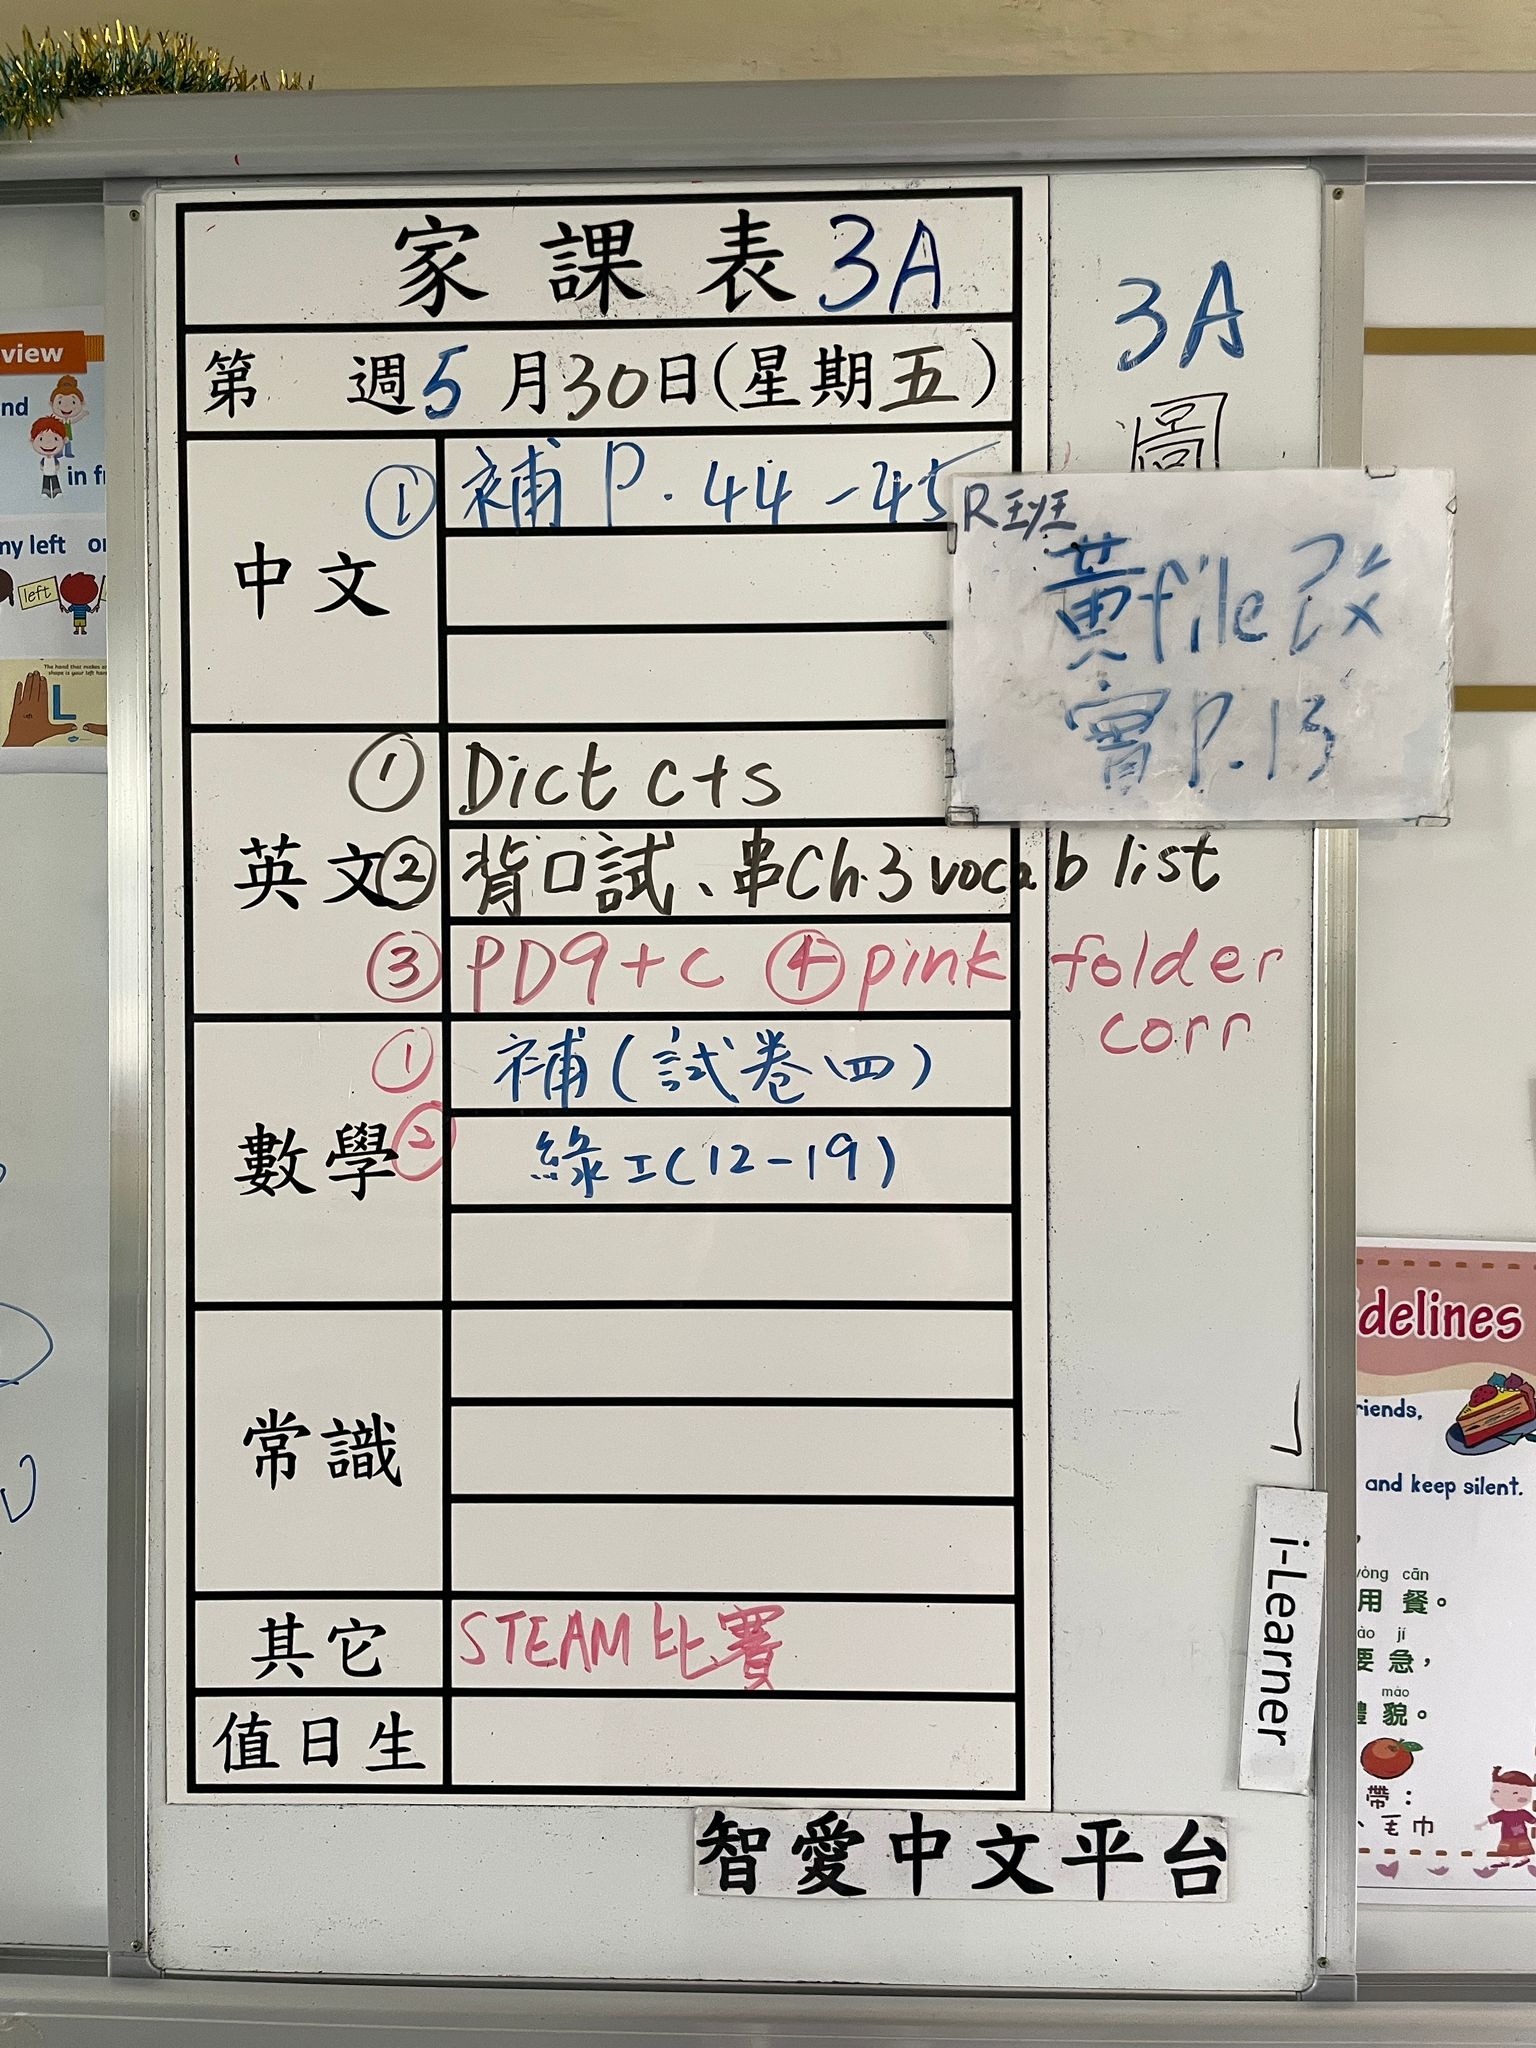 家課表 3A
第 週 5月30日(星期五)
3A
圖
中文
① 補 P.44-45
R班
黃file改
實P.13
英文
① Dict c+s
② 背口試、串Ch.3 vocab list
③ PD9+c ④ pink folder
corr
數學
① 補(試卷四)
② 綠工(12-19)
常識
其它
STEAM比賽
值日生
i-Learner
智愛中文平台
view
nd
in f
my left o
left
The hand that makes
shape is your left
L
idelines
riends,
and keep silent.
yòng cān
用餐。
jí
要急，
mào
貌。
帶：
、毛巾